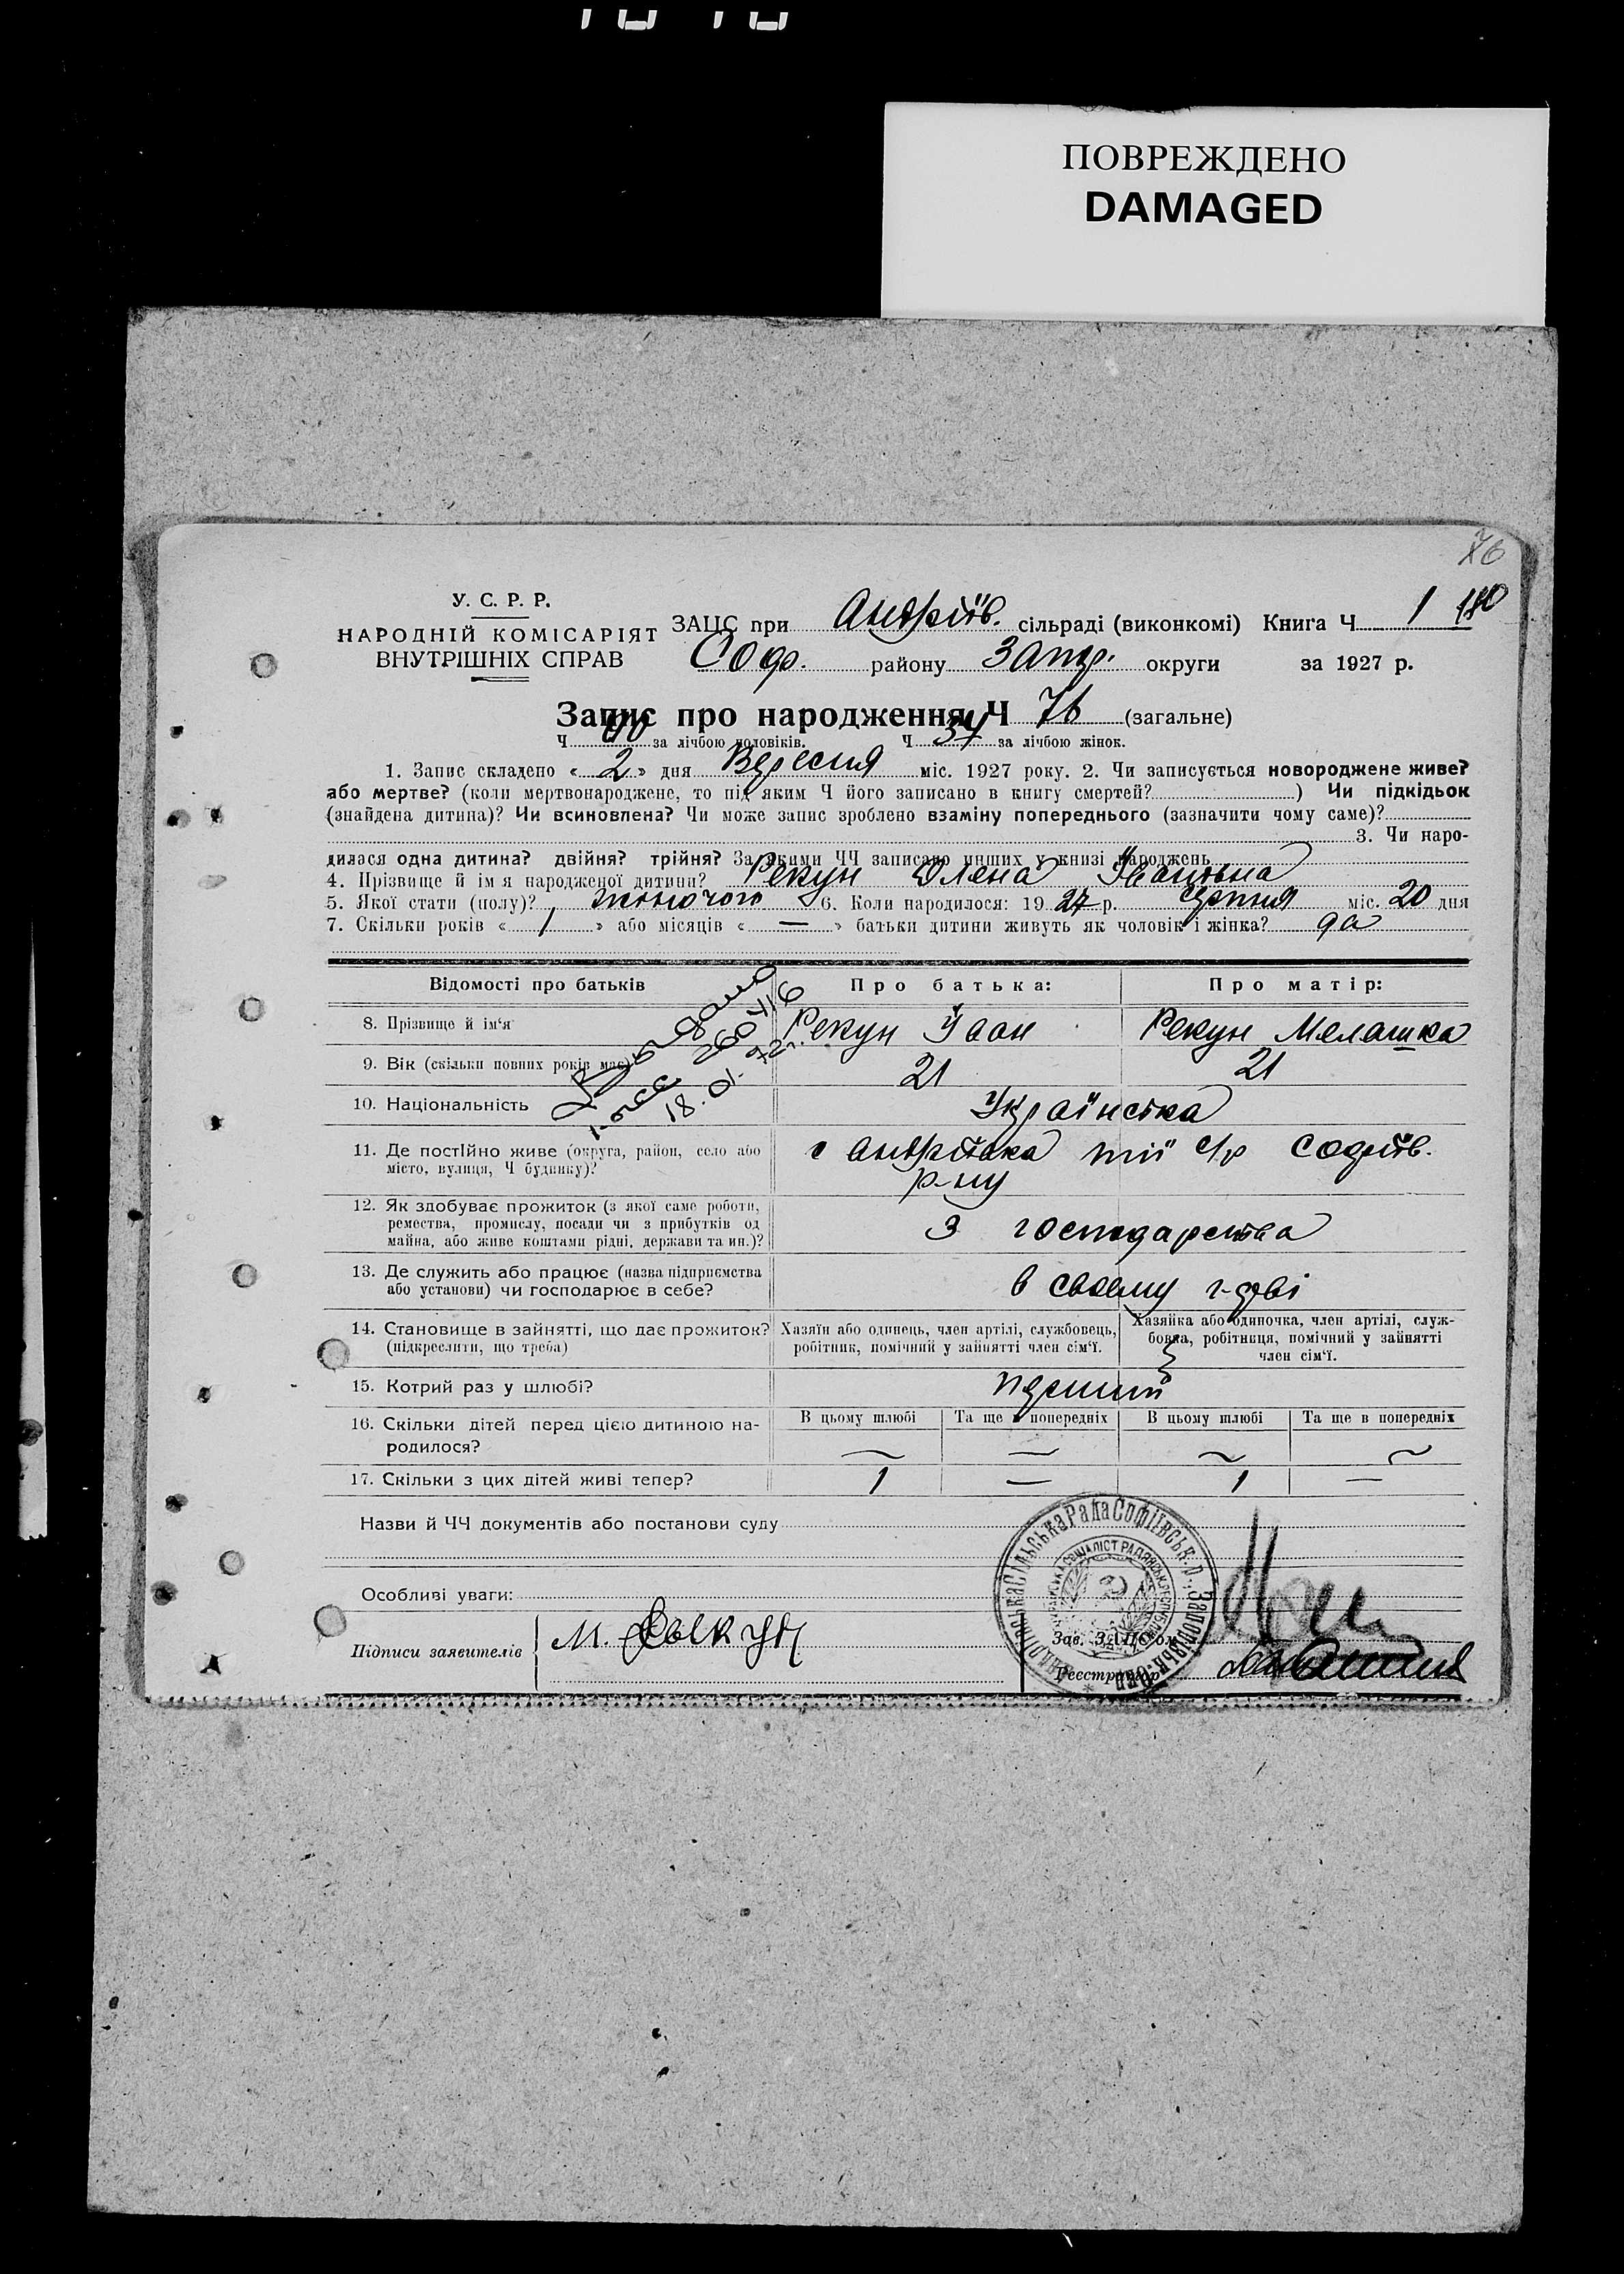 ПОВРЕЖДЕНО
DAMAGED
76
У. С. Р. Р.
НАРОДНІЙ КОМІСАРІЯТ
ВНУТРІШНІХ СПРАВ
ЗАЦС при Андріїв. сільраді (виконкомі) Книга Ч 1 180
Соф. району Запор. округи за 1927 р.
Запис про народження Ч 76 (загальне)
Ч за лічбою чоловіків. Ч 34 за лічбою жінок.
1. Запис складено « 2 » дня Вересня міс. 1927 року. 2. Чи записується новороджене живе?
або мертве? (коли мертвонароджене, то під яким Ч його записано в книгу смертей? ) Чи підкідьок
(знайдена дитина)? Чи всиновлена? Чи може запис зроблено взаміну попереднього (зазначити чому саме)?
3. Чи наро-
дилася одна дитина? двійня? трійня? За якими ЧЧ записано инших у книзі народжень
4. Прізвище й ім'я народженої дитини? Рекун Олена Іванівна
5. Якої стати (полу)? жіночого 6. Коли народилося: 1927 р. Серпня міс. 20 дня
7. Скільки років « 1 » або місяців « — » батьки дитини живуть як чоловік і жінка? да
Відомості про батьків
Про батька:
Про матір:
Выдано
260416
18.01.72г.
8. Прізвище й ім'я Рекун Іван Рекун Мелашка
9. Вік (скільки повних років має) 21 21
10. Національність Українська
11. Де постійно живе (округа, район, село або
місто, вулиця, Ч будинку)?
с Андріївка тії с/р Софіїв.
р-ну
12. Як здобуває прожиток (з якої саме роботи,
ремества, промислу, посади чи з прибутків од
майна, або живе коштами рідні, держави та ин.)?
З господарства
13. Де служить або працює (назва підприємства
або установи) чи господарює в себе?
в своєму г-дві
14. Становище в зайнятті, що дає прожиток?
(підкреслити, що треба)
Хазяїн або одинець, член артілі, службовець,
робітник, помічний у зайнятті член сім'ї.
Хазяйка або одиночка, член артілі, служ-
бовка, робітниця, помічний у зайнятті
член сім'ї.
15. Котрий раз у шлюбі? перший
16. Скільки дітей перед цією дитиною на-
родилося?
В цьому шлюбі Та ще в попередніх В цьому шлюбі Та ще в попередніх
— — — —
17. Скільки з цих дітей живі тепер? 1 — 1 —
Назви й ЧЧ документів або постанови суду
Особливі уваги:
Підписи заявителів
Зав. ЗАЦС'ом
Реєстратор